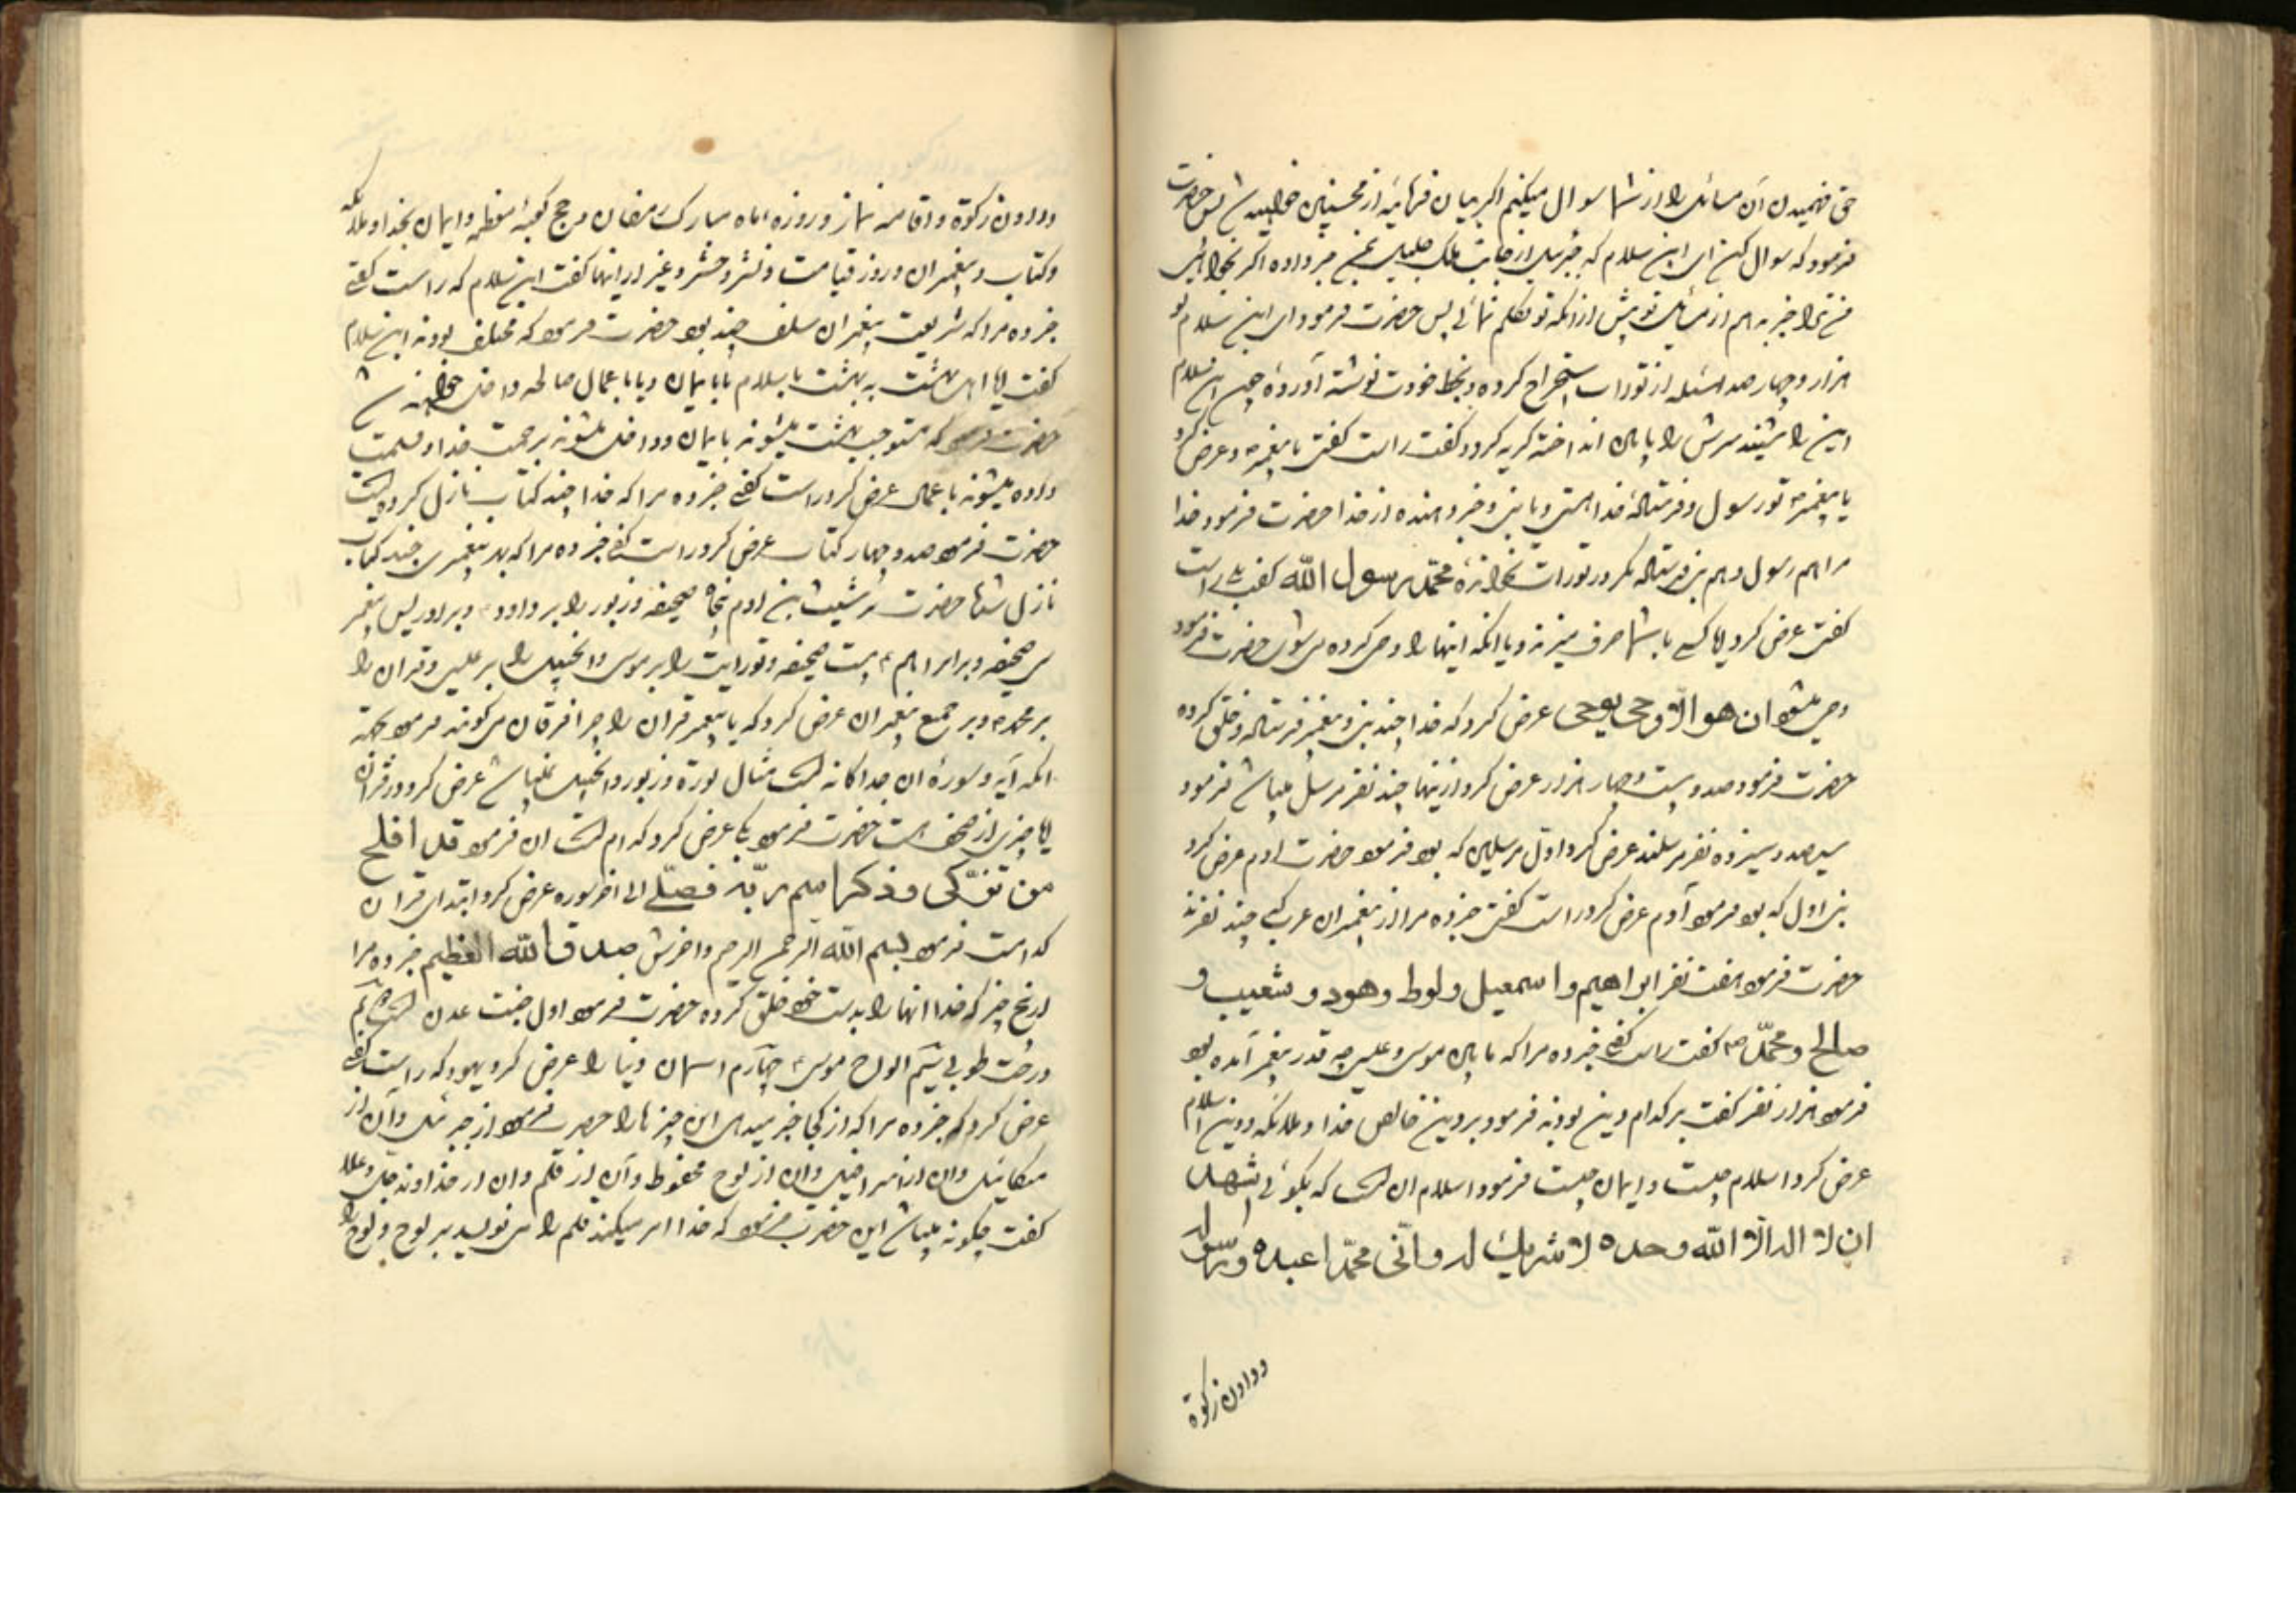 حق فهمیدن آن مسائل را از شما سوال میکنیم اکر بیان فرمائید از محسنین خواهید شد پس حضرت
فرمود که سوال کن ای ابن سلام که جبرئیل از جانب ملک جلیل بمن خبر داده اکر بخواهی
من ترا خبر بدهم از مسائل تو پیش از انکه تو تکلم نمائی پس حضرت فرمود ای ابن سلام تو
هزار و چهار صد مسئله از تورات استخراج کرده و بخط خودت نوشته آورده چون ابن سلام
این را شنید سرش را پایین انداخته کریه کرد و کفت راست کفتی یا پیغمبر و عرض کرد
یا پیغمبر تو رسول و فرستاده خدا هستی و یا نبی و خبر دهنده از خدا حضرت فرمود خدا
مرا هم رسول و هم نبی فرستاده مکر در تورات نخوانده محمّد رسول الله کفت بلی راست
کفتی عرض کرد ایا کسی با شما حرف میزند و یا انکه اینها را وحی کرده می شود حضرت فرمود
وحی میشود ان هو الّا وحی یوحی عرض کرد که خدا چند نبی و پیغمبر فرستاده و خلق کرده
حضرت فرمود صد و بیست و چهار هزار عرض کرد از اینها چند نفر مرسل میباشد فرمود
سیصد و سیزده نفر مرسلند عرض کرد اول مرسلین که بود فرمود حضرت ادم عرض کرد
نبی اول که بود فرمود آدم عرض کرد راست کفتی خبر ده مرا از پیغمبران عرب که چند نفرند
حضرت فرمود هفت نفر ابراهیم و اسمعیل و لوط و هود و شعیب و
صالح و محمّد ص کفت راست کفتی خبر ده مرا که مابین موسی و عیسی چه قدر پیغمبر آمده بود
فرمود هزار نفر کفت بر کدام دین بودند فرمود بر دین خالص خدا و ملائکه و دین اسلام
عرض کرد اسلام چیست و ایمان چیست فرمود اسلام ان است که بکوئی اشهد
ان لا اله الّا الله وحده لا شریک له و انّی محمّدا عبده و رسوله
و دادن زکوة
و دادن زکوة و اقامه نماز و روزه ماه مبارک رمضان و حج کعبه معظمه و ایمان بخدا و ملائکه
و کتاب و پیغمبران و روز قیامت و نشر و حشر و غیر از اینها کفت ابن سلام که راست کفتی
خبر ده مرا که شریعت پیغمبران سلف چند بود حضرت فرمود که مختلف بودند ابن سلام
کفت ایا اهل بهشت به بهشت با سلام یا با ایمان و یا با عمال صالحه داخل خواهند شد
حضرت فرمود که مستوجب بهشت میشوند با یمان و داخل میشوند برحمت خدا و قسمت
داده میشوند با عمال عرض کرد راست کفتی خبر ده مرا که خدا چند کتاب نازل کرده است
حضرت فرمود صد و چهار کتاب عرض کرد راست کفتی خبر ده مرا که بهر پیغمبری چند کتاب
نازل شد حضرت بر شیث بن ادم پنجاه صحیفه و زبور را بر داود و بر ادریس پیغمبر
سی صحیفه و بر ابراهیم بیست صحیفه و تورایت را بر موسی و انجیل را بر عیسی و قران را
بر محمد و بر جمیع پیغمبران عرض کرد که یا پیغمبر قران را چرا فرقان می کویند فرمود بجهة
انکه آیه و سوره ان جداکانه است مثال توراة و زبور و انجیل نمیباشد عرض کرد در قران
ایا چیزی از صحف هست حضرت فرمود بلی عرض کرد که کدام است ان فرمود قد افلح
من تزکّی و ذکر اسم ربّه فصلّی الی اخر سوره عرض کرد ابتدای قران
کدامست فرمود بسم الله الرحمن الرحیم و اخرش صدق الله العظیم خبر ده مرا
از پنج چیز که خدا انها را بدست خود خلق کرده حضرت فرمود اول جنت عدن است
درخت طوبی سیّم الواح موسی چهارم اسمان دنیا را عرض کرد یهود که راست کفتی
عرض کرد که خبر ده مرا که از کجا خبر میدهی این چیزها را حضرت فرمود از جبرئیل و آن از
میکائیل و ان از اسرافیل و ان از لوح محفوظ و آن از قلم و ان از خداوند جل و علا
کفت چکونه میباشد این حضرت فرمود که خدا امر میکند قلم را می نویسد بر لوح و لوح را